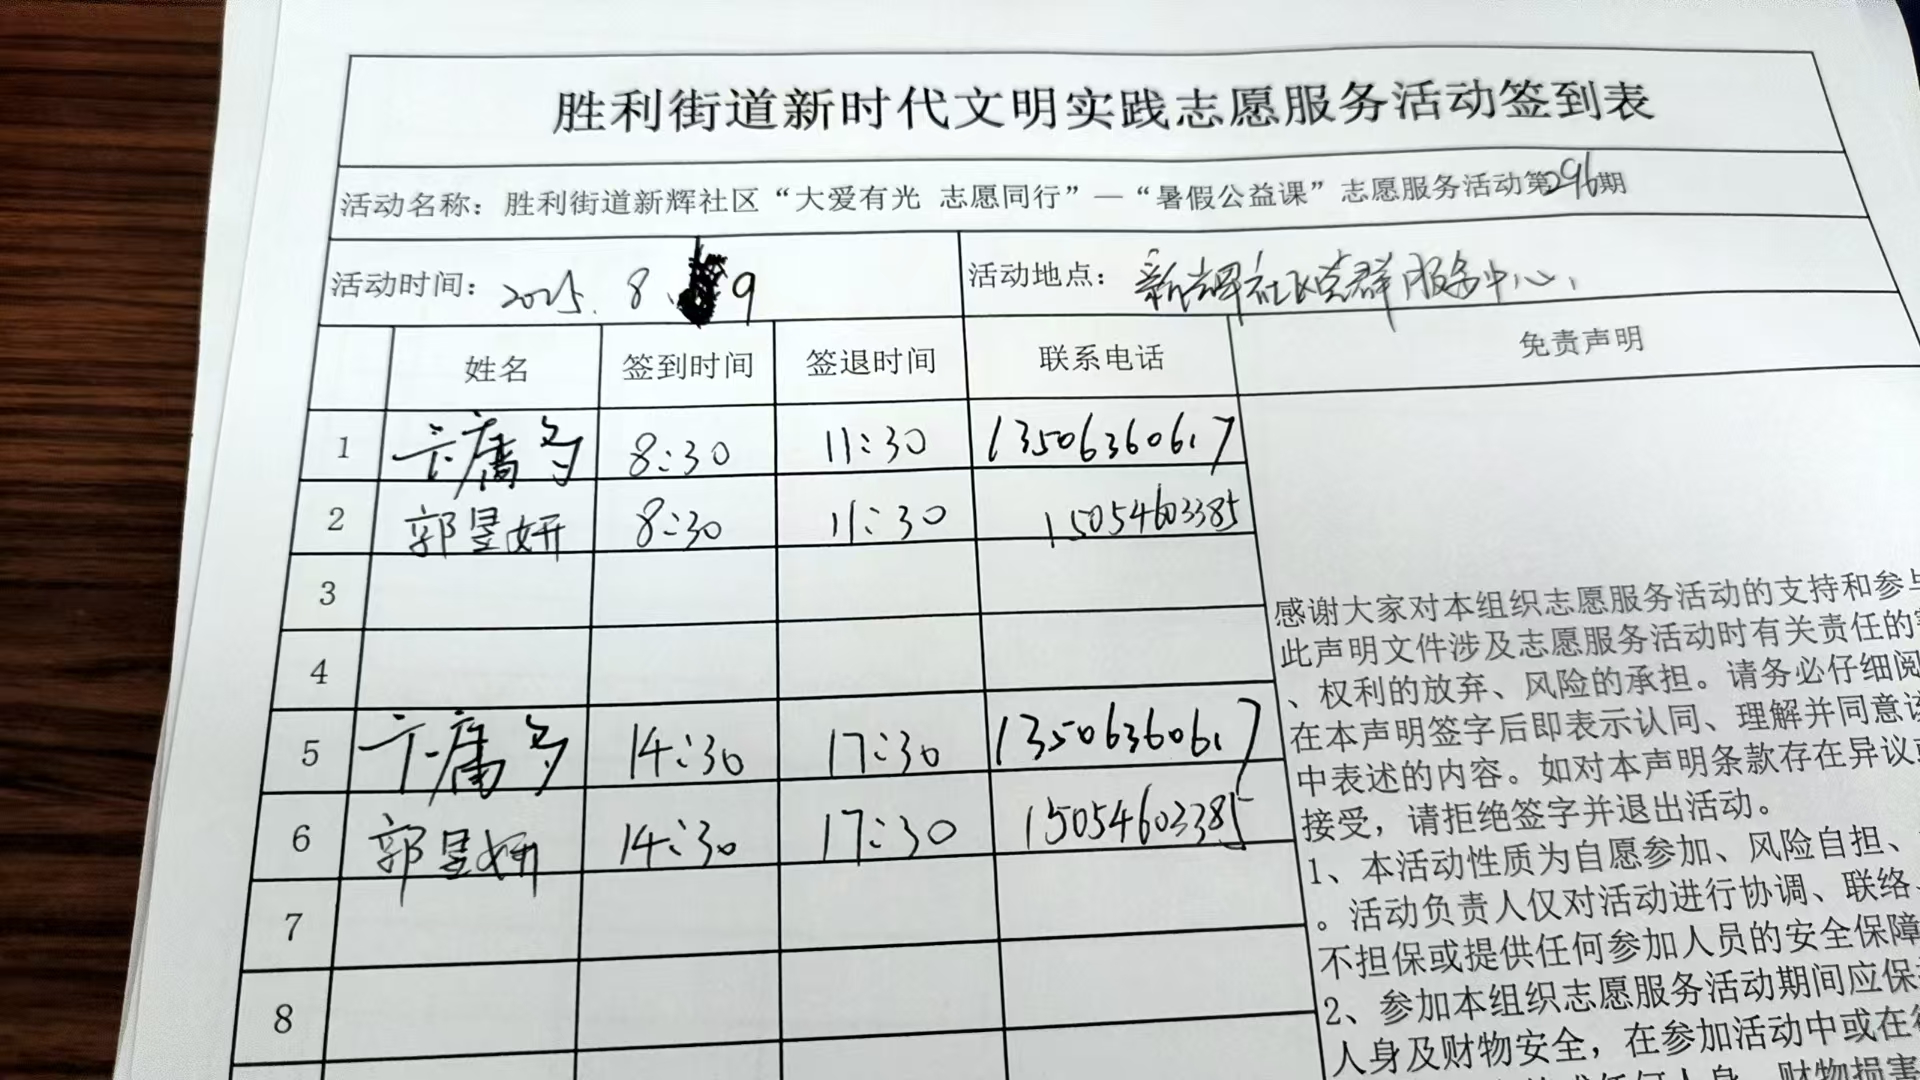 胜利街道新时代文明实践志愿服务活动签到表
活动名称：胜利街道新辉社区“大爱有光 志愿同行”—“暑假公益课”志愿服务活动第296期
活动时间：2025.8.9 活动地点：新辉社区党群服务中心.
姓名 签到时间 签退时间 联系电话 免责声明
1 8:30 11:30 13506360617
2 郭昱妍 8:30 11:30 15054603385
3
4
5 14:30 17:30 13506360617
6 郭昱妍 14:30 17:30 15054603385
7
8
感谢大家对本组织志愿服务活动的支持和参与
此声明文件涉及志愿服务活动时有关责任的
、权利的放弃、风险的承担。请务必仔细阅
在本声明签字后即表示认同、理解并同意该
中表述的内容。如对本声明条款存在异议或
接受，请拒绝签字并退出活动。
1、本活动性质为自愿参加、风险自担、
。活动负责人仅对活动进行协调、联络、
不担保或提供任何参加人员的安全保障
2、参加本组织志愿服务活动期间应保
人身及财物安全，在参加活动中或在
任何人身、财物损害